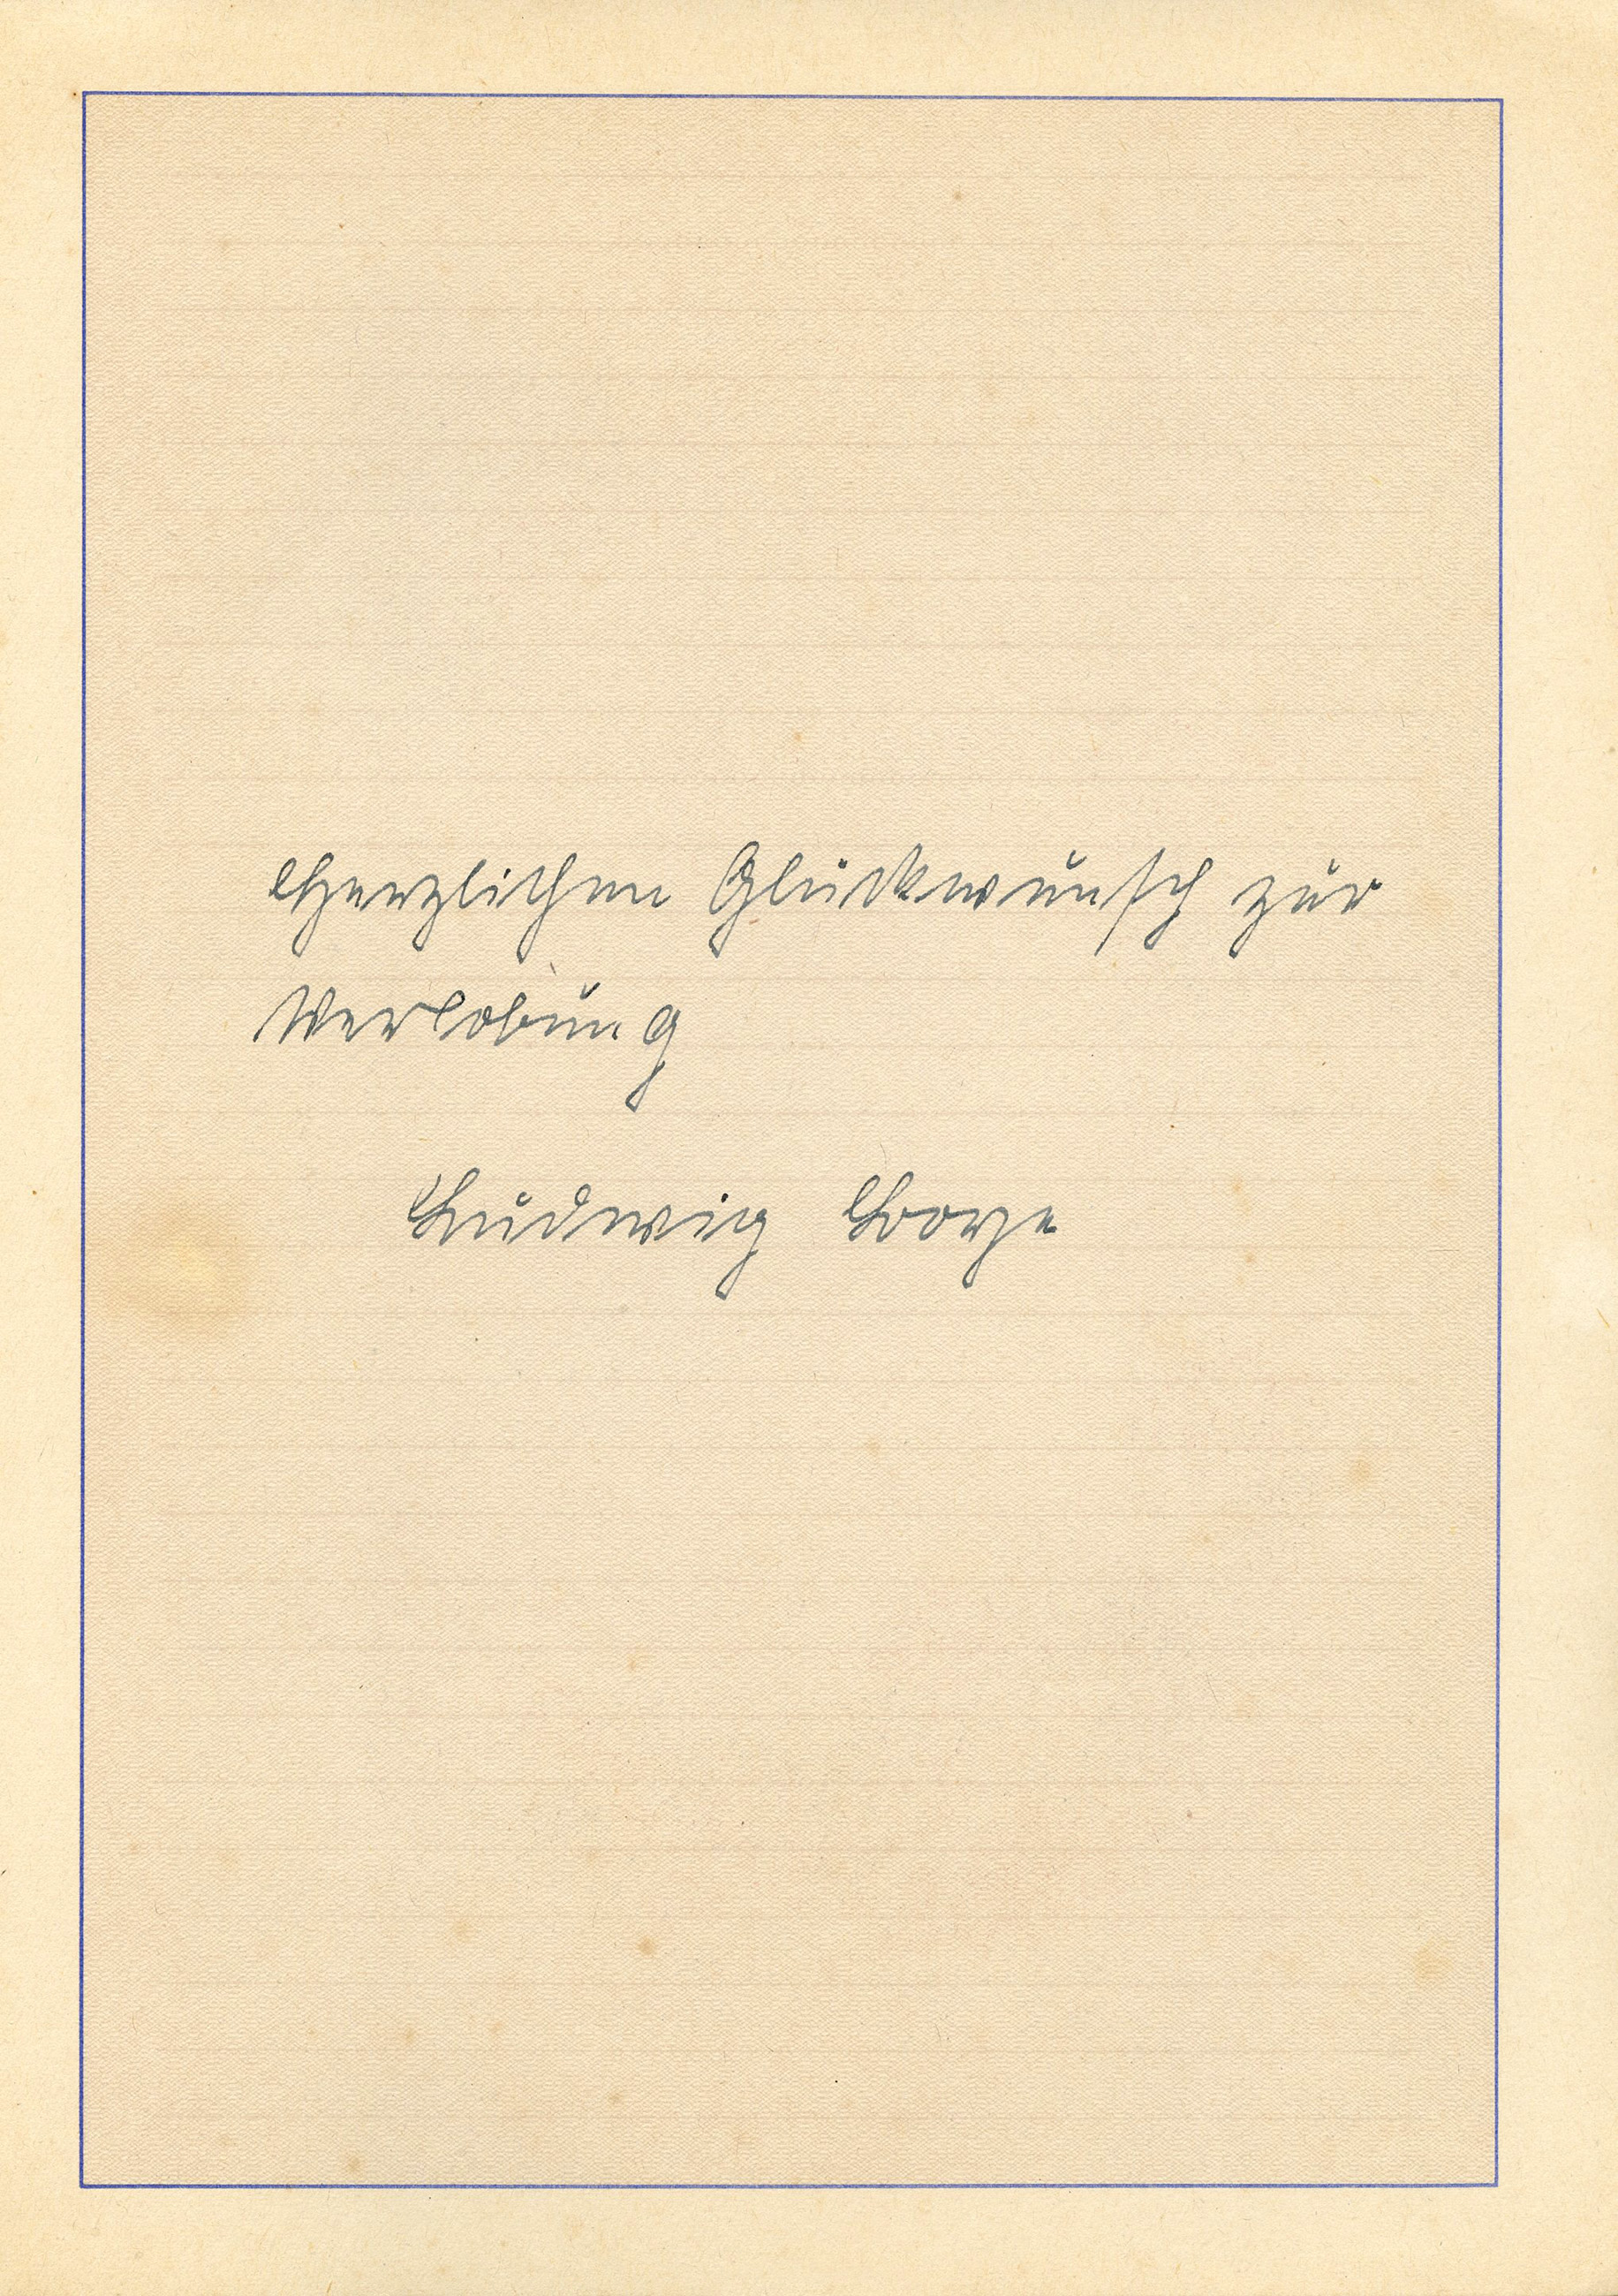 Herzlichen Glückwunsch zur
Verlobung
Ludwig